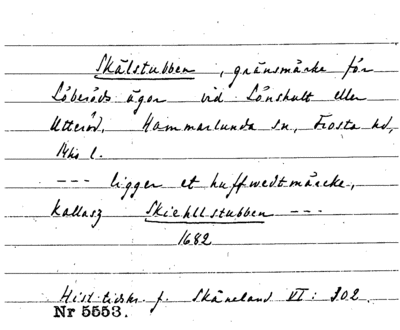 Skälstubben, gränsmärke för
Löberöds ägor vid Lönshult eller
Utteröd, Hammarlunda sn, Frosta hd,
Mhs l.
--- ligger et huffwedtmärcke,
kallasz Skiehllstubben ---
1682
Hist. tidskr. f. Skåneland VI: 302.
Nr 5553.